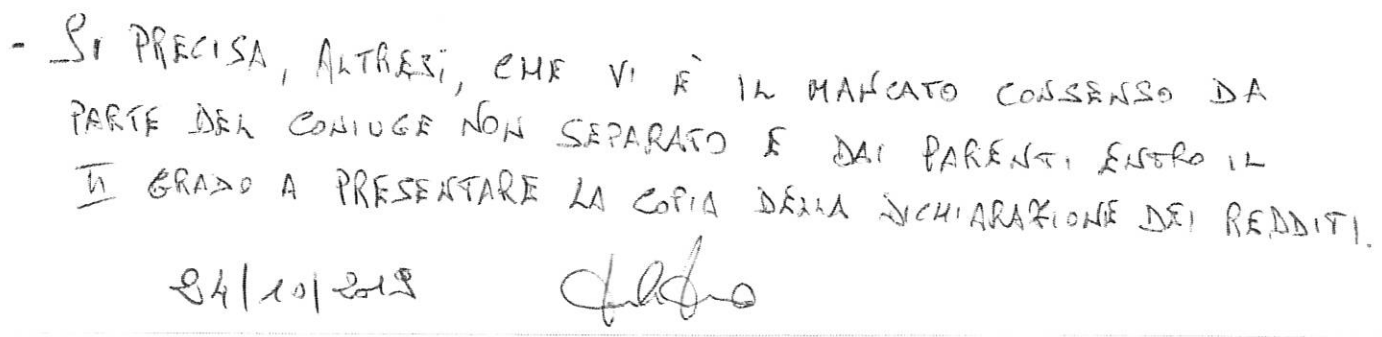 - SI PRECISA, ALTRESì, CHE VI È IL MANCATO CONSENSO DA
PARTE DEL CONIUGE NON SEPARATO E DAI PARENTI ENTRO IL
II GRADO A PRESENTARE LA COPIA DELLA DICHIARAZIONE DEI REDDITI.
24/10/2019